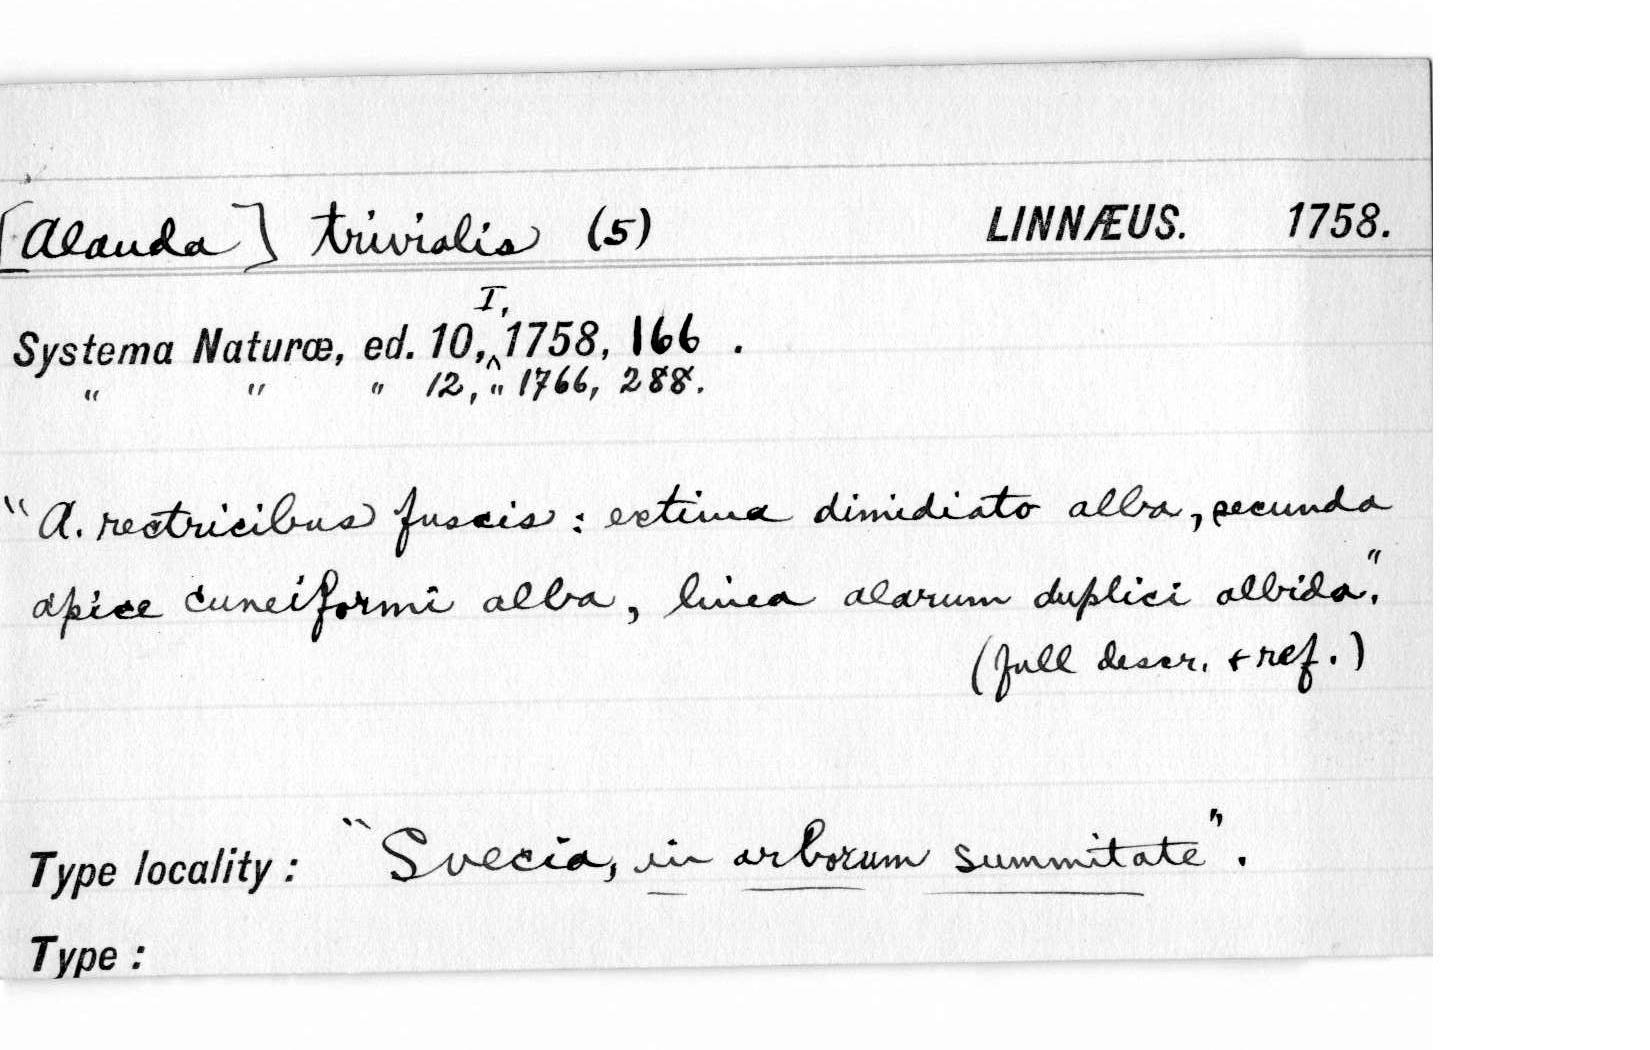 [Alauda] trivialis (5) LINNÆUS. 1758.
I,
Systema Naturæ, ed. 10,^ 1758, 166 .
" " " 12, " 1766, 288.
"A. rectricibus fuscis : extima dimidiato alba, secunda
apice cuneiformi alba, linea alarum duplici albida."
(full descr. & ref.)
Type locality : "Svecia, in arborum summitate".
Type :